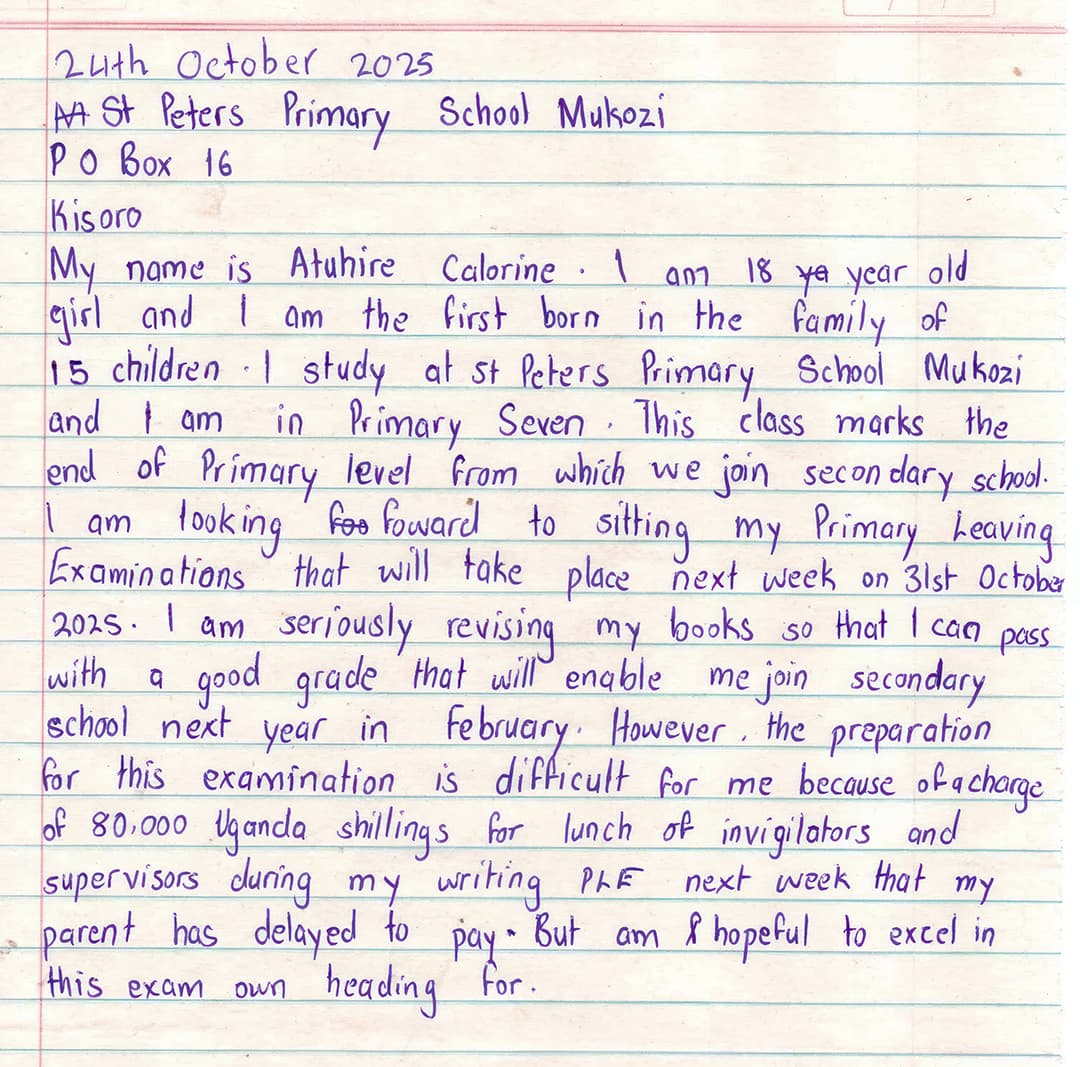 24th October 2025
St Peters Primary School Mukozi
P O Box 16
Kisoro
My name is Atuhire Calorine. I am 18 ya year old
girl and I am the first born in the family of
15 children. I study at st Peters Primary School Mukozi
and I am in Primary Seven. This class marks the
end of Primary level from which we join secondary school.
I am looking foo foward to sitting my Primary Leaving
Examinations that will take place next week on 31st October
2025. I am seriously revising my books so that I can pass
with a good grade that will enable me join secondary
school next year in February. However, the preparation
for this examination is difficult for me because of a charge
of 80,000 Uganda shillings for lunch of invigilators and
supervisors during my writing PLE next week that my
parent has delayed to pay. But am hopeful to excel in
this exam own heading for.